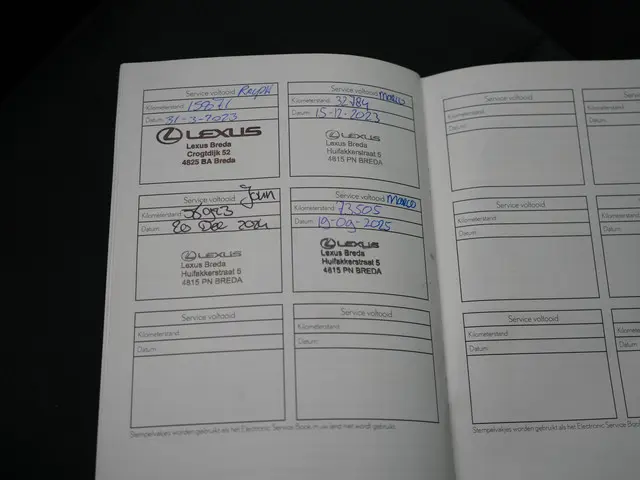 Service voltooid Ralph
Kilometerstand: 15871
Datum: 31-3-2023
LEXUS
Lexus Breda
Crogtdijk 52
4825 BA Breda
Service voltooid Marco
Kilometerstand: 32784
Datum: 15-12-2023
LEXUS
Lexus Breda
Huifakkerstraat 5
4815 PN BREDA
Service voltooid
Kilometerstand:
Datum: 20 Dec 2024
LEXUS
Lexus Breda
Huifakkerstraat 5
4815 PN BREDA
Service voltooid Marco
Kilometerstand: 73505
Datum: 19-09-2025
LEXUS
Lexus Breda
Huifakkerstraat 5
4815 PN BREDA
Service voltooid
Kilometerstand:
Datum:
Service voltooid
Kilometerstand:
Datum:
Stempelvakjes worden gebruikt als het Electronic Service Book in uw land niet wordt gebruikt.
Service voltooid
Kilometerstand:
Datum:
Service voltooid
Kilometerstand:
Datum:
Service voltooid
Kilometerstand:
Datum:
Stempelvakjes worden gebruikt als het Electronic Service Book